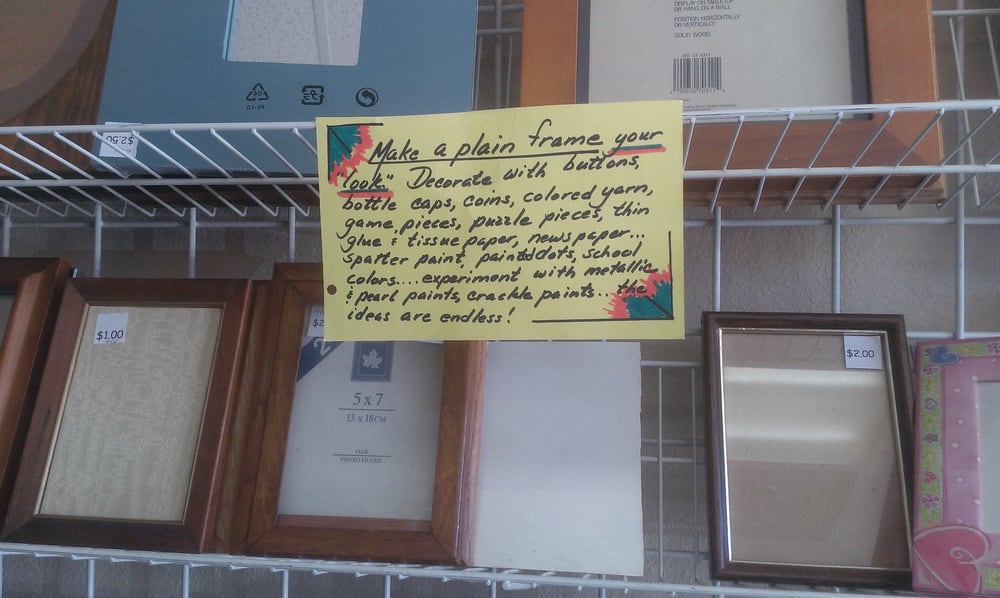 DISPLAY ON TABLETOP
OR HANG ON A WALL
POSITION HORIZONTALLY
OR VERTICALLY
SOLID WOOD
04
$2.50
Make a plain frame your
"look." Decorate with buttons,
bottle caps, coins, colored yarn,
game pieces, puzzle pieces, thin
glue & tissue paper, newspaper...
spatter paint, paint dots, school
colors.... experiment with metallic
& pearl paints, crackle paints... the
ideas are endless!
$1.00
$2
5 x 7
13 x 18CM
OAK
PHOTO FRAME
$2.00